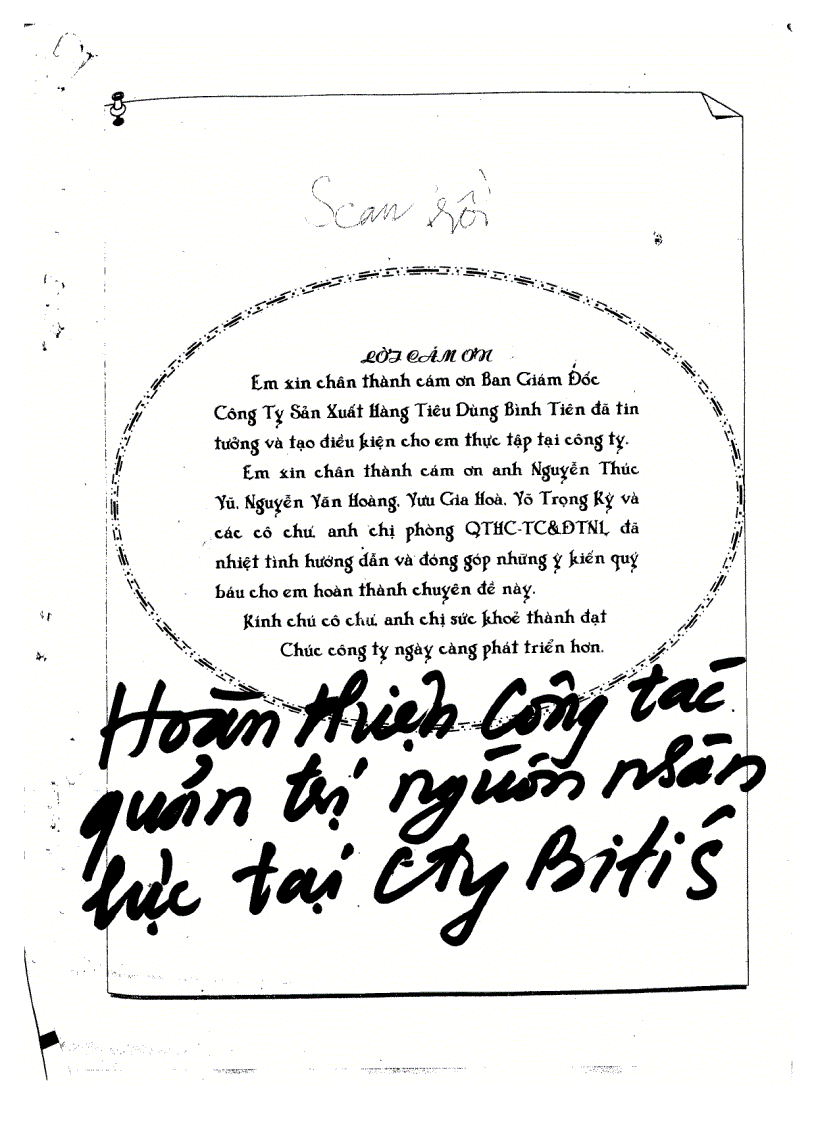 Scan rồi
LỜI CÁM ƠN
Em xin chân thành cám ơn Ban Giám Đốc
Công Ty Sản Xuất Hàng Tiêu Dùng Bình Tiên đã tin
tưởng và tạo điều kiện cho em thực tập tại công ty.
Em xin chân thành cám ơn anh Nguyễn Thúc
Vũ, Nguyễn Văn Hoàng, Vưu Gia Hoà, Võ Trọng Kỳ và
các cô chú, anh chị phòng QTHC-TC&ĐTNL đã
nhiệt tình hướng dẫn và đóng góp những ý kiến quý
báu cho em hoàn thành chuyên đề này.
Kính chú cô chú, anh chị sức khoẻ thành đạt
Chúc công ty ngày càng phát triển hơn.
Hoàn thiện Công tác
quản trị nguồn nhân
lực tại Cty Biti's